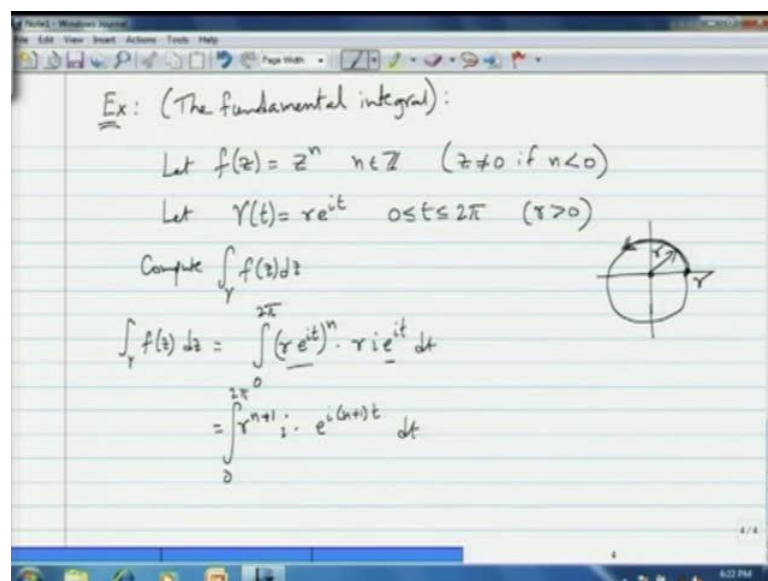 Note1 - Windows Journal
File Edit View Insert Actions Tools Help
Page Width
Ex: (The fundamental integral):
Let f(z) = z^n n ∈ ℤ (z ≠ 0 if n < 0)
Let γ(t) = re^{it} 0 ≤ t ≤ 2π (r > 0)
r
γ
Compute ∫_γ f(z) dz
∫_γ f(z) dz = ∫_0^{2π} (re^{it})^n · r i e^{it} dt
= ∫_0^{2π} r^{n+1} i · e^{i(n+1)t} dt
4/4
6:22 PM